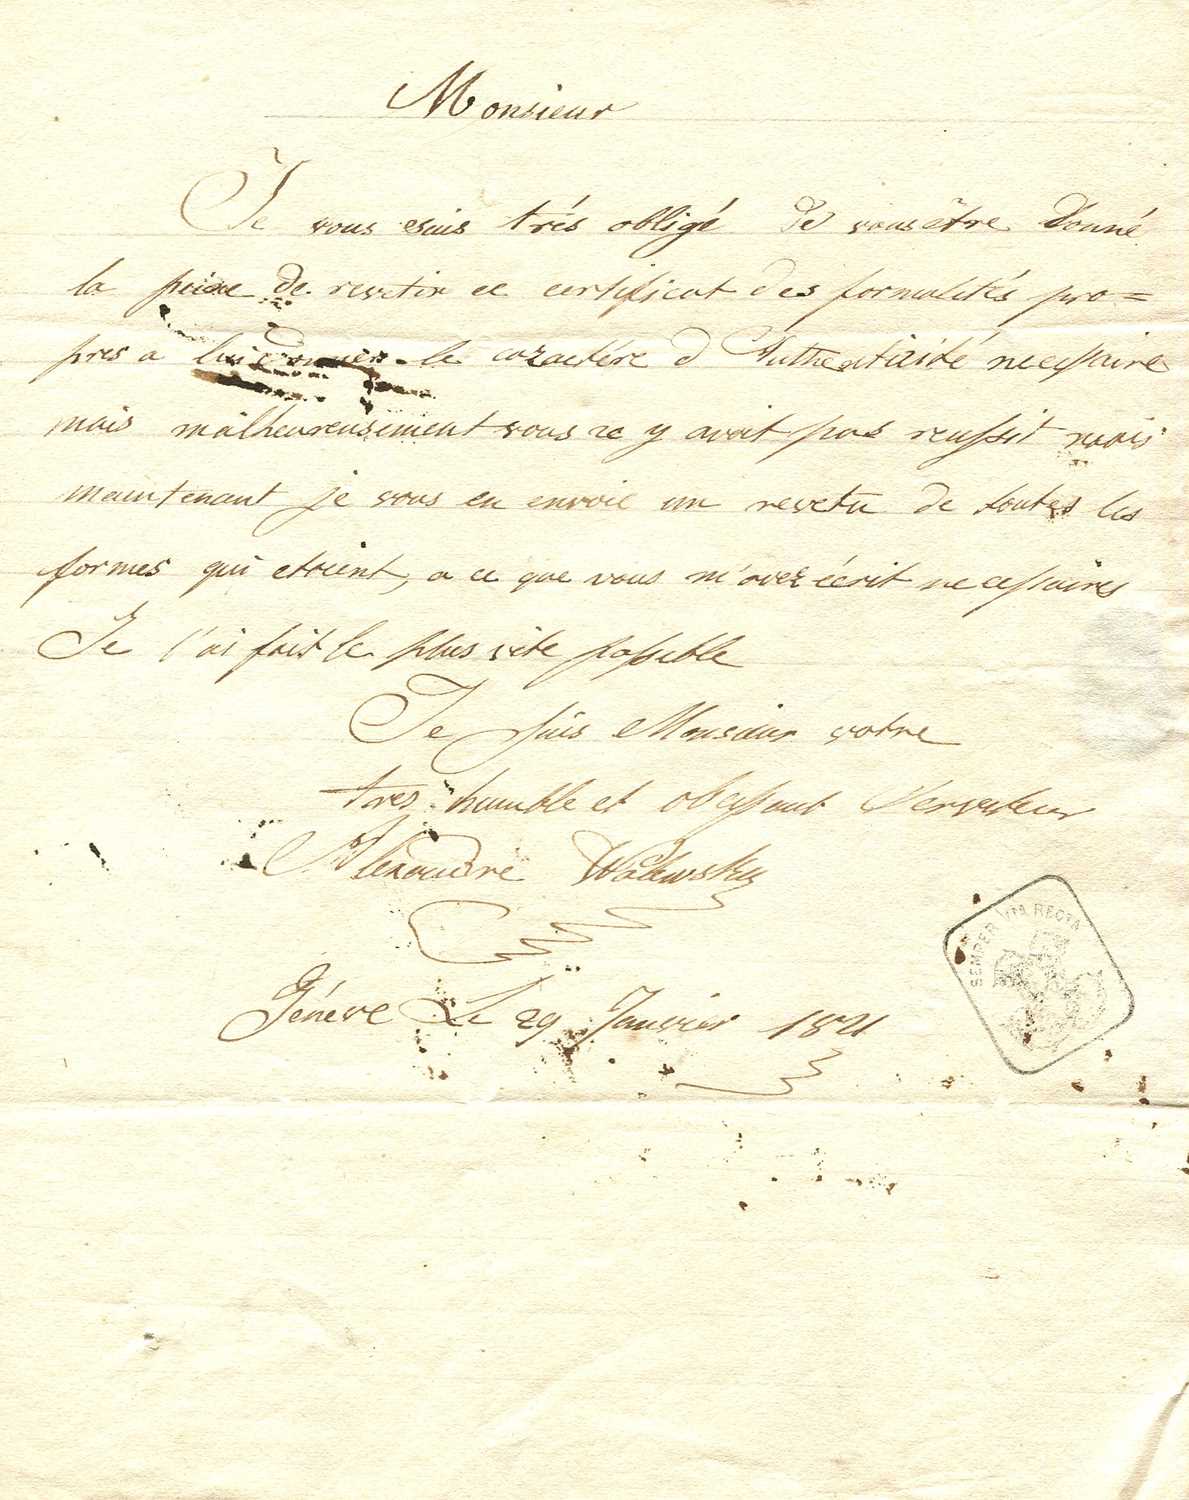 Monsieur
Je vous suis trés obligé de vous être donné
la peine de revetir ce certificat des formalités pro=
pres a lui donner le caractére d'Authenticité necessaire
mais malheureusement vous ne y avait pas reussit mais
maintenant je vous en envoie un revetu de toutes les
formes qui etoient, a ce que vous m'avez écrit necessaires
Je l'ai fait le plus vite possible
Je suis Monsieur votre
tres humble et obeissant Serviteur
Alexandre Walewsky
Génève Le 29 Janvier 1821
SEMPER VIA RECTA